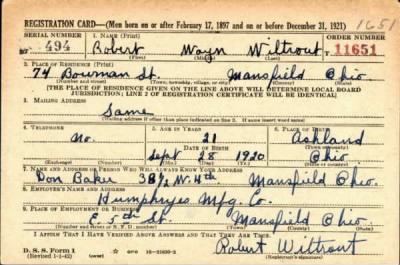 REGISTRATION CARD—(Men born on or after February 17, 1897 and on or before December 31, 1921) 1651
SERIAL NUMBER 1. NAME (Print) ORDER NUMBER
494 Robert Wayn Wiltrout 11651
(First) (Middle) (Last)
2. PLACE OF RESIDENCE (Print)
74 Bowman St. Mansfield Ohio
(Number and street) (Town, township, village, or city) (County) (State)
[THE PLACE OF RESIDENCE GIVEN ON THE LINE ABOVE WILL DETERMINE LOCAL BOARD
JURISDICTION; LINE 2 OF REGISTRATION CERTIFICATE WILL BE IDENTICAL]
3. MAILING ADDRESS
Same
[Mailing address if other than place indicated on line 2. If same insert word same]
4. TELEPHONE 5. AGE IN YEARS 6. PLACE OF BIRTH
no. 21 Ashland
DATE OF BIRTH (Town or county)
Sept 28 1920 Ohio.
(Exchange) (Number) (Mo.) (Day) (Yr.) (State or country)
7. NAME AND ADDRESS OF PERSON WHO WILL ALWAYS KNOW YOUR ADDRESS
Don Baker 38½ W. 4th Mansfield Ohio.
8. EMPLOYER'S NAME AND ADDRESS
Humphryes Mfg. Co.
9. PLACE OF EMPLOYMENT OR BUSINESS
E. 5th St. Mansfield Ohio.
(Number and street or R. F. D. number) (Town) (County) (State)
I AFFIRM THAT I HAVE VERIFIED ABOVE ANSWERS AND THAT THEY ARE TRUE.
D. S. S. Form 1
(Revised 1-1-42) (over) GPO 16—21630-2
Robert Wiltrout
(Registrant's signature)